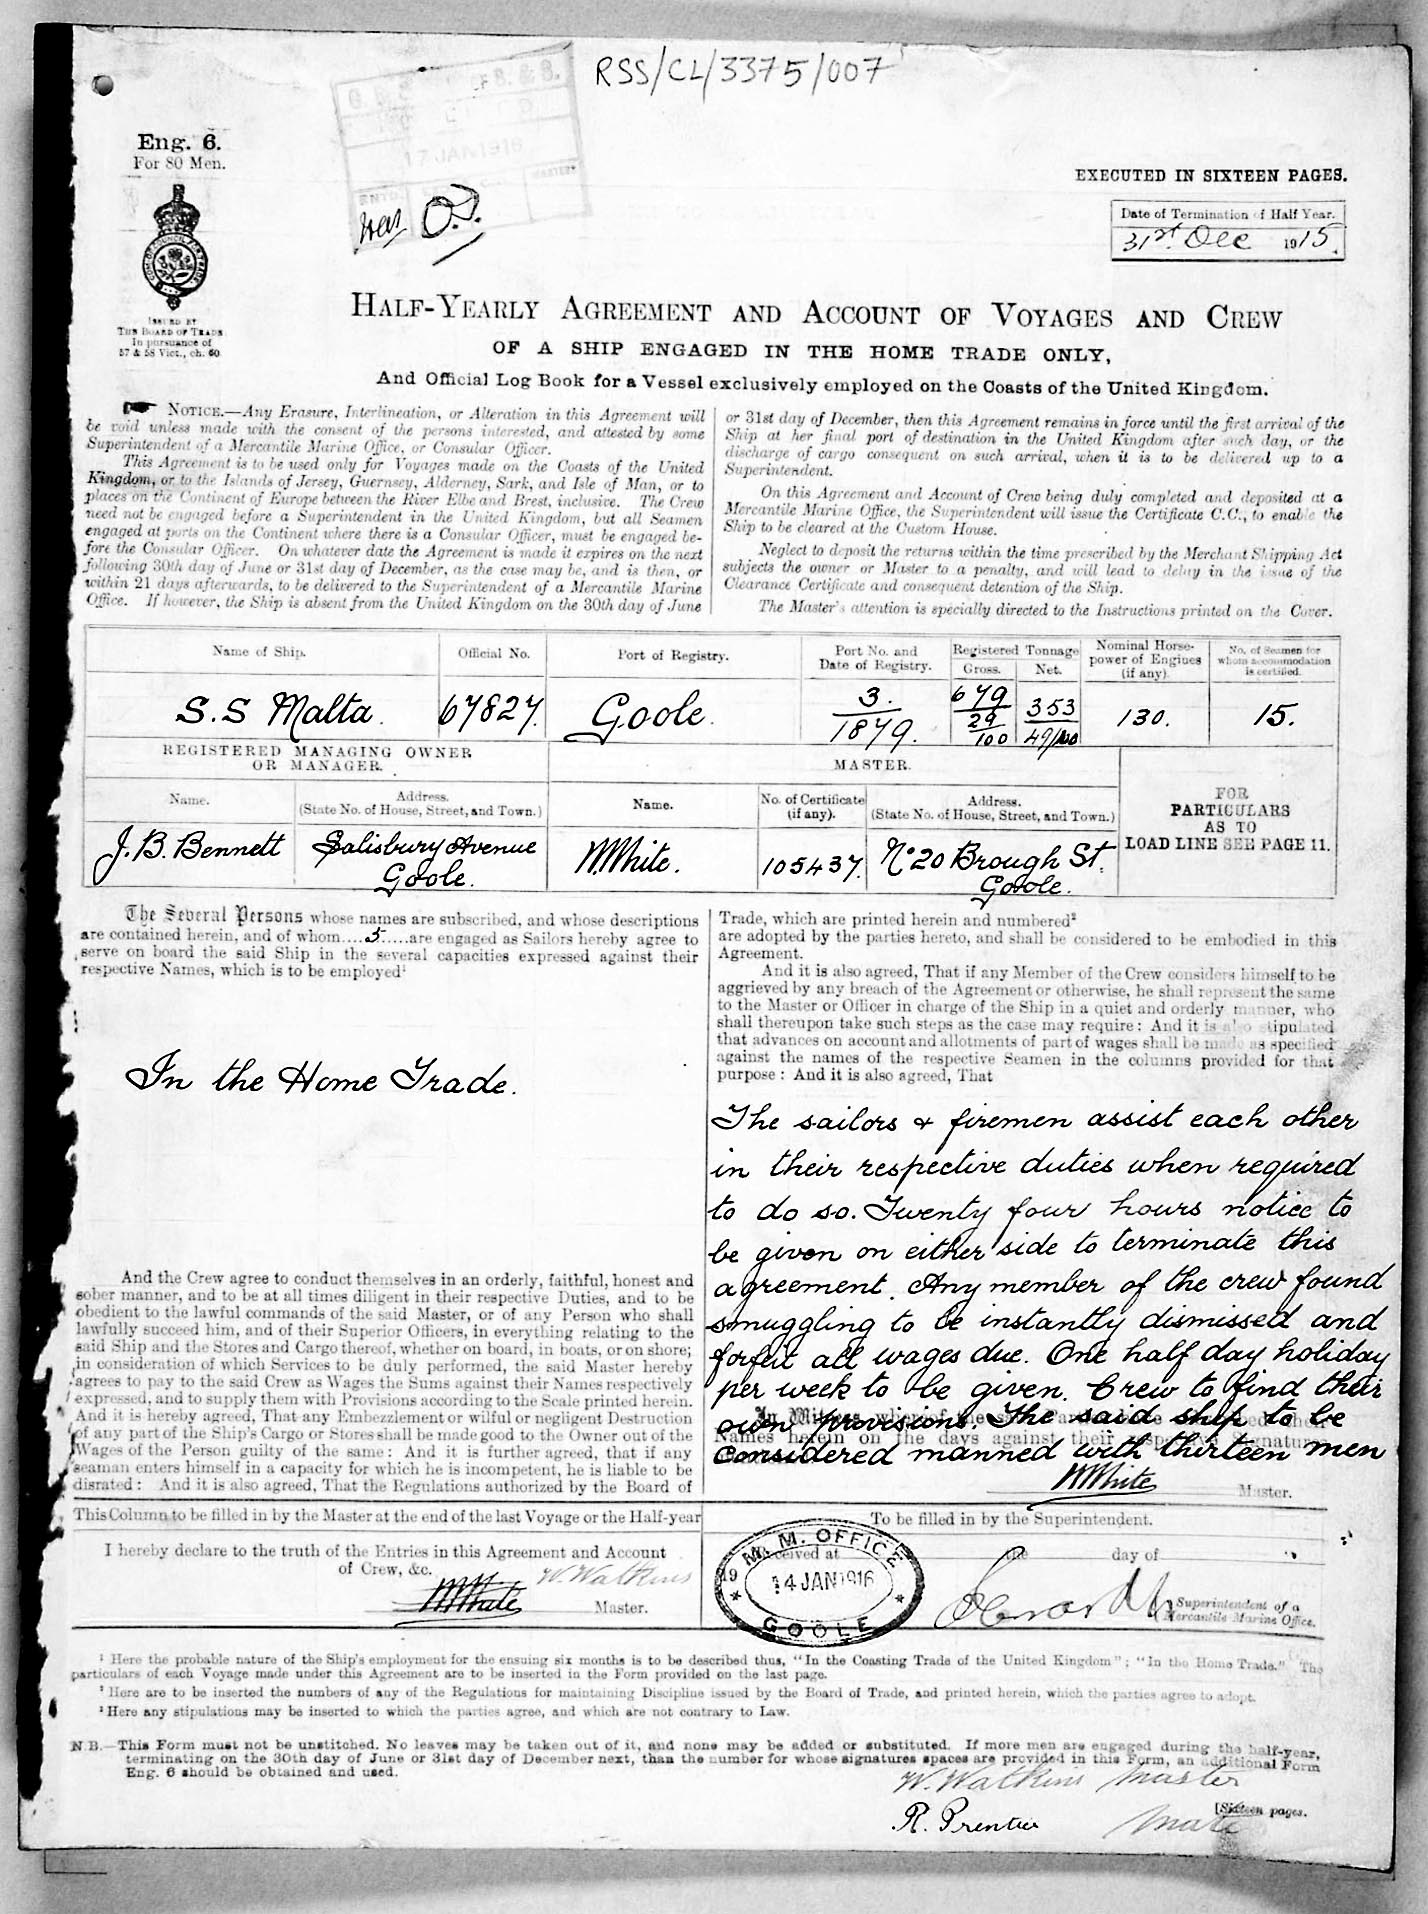 RSS/CL/3375/007
17 JAN 1916
Eng. 6.
For 80 Men.
EXECUTED IN SIXTEEN PAGES.
Date of Termination of Half Year.
31st Dec 1915.
ISSUED BY
THE BOARD OF TRADE
In pursuance of
57 & 58 Vict., ch. 60.
HALF-YEARLY AGREEMENT AND ACCOUNT OF VOYAGES AND CREW
OF A SHIP ENGAGED IN THE HOME TRADE ONLY,
And Official Log Book for a Vessel exclusively employed on the Coasts of the United Kingdom.
NOTICE.—Any Erasure, Interlineation, or Alteration in this Agreement will
be void unless made with the consent of the persons interested, and attested by some
Superintendent of a Mercantile Marine Office, or Consular Officer.
This Agreement is to be used only for Voyages made on the Coasts of the United
Kingdom, or to the Islands of Jersey, Guernsey, Alderney, Sark, and Isle of Man, or to
places on the Continent of Europe between the River Elbe and Brest, inclusive. The Crew
need not be engaged before a Superintendent in the United Kingdom, but all Seamen
engaged at ports on the Continent where there is a Consular Officer, must be engaged be-
fore the Consular Officer. On whatever date the Agreement is made it expires on the next
following 30th day of June or 31st day of December, as the case may be, and is then, or
within 21 days afterwards, to be delivered to the Superintendent of a Mercantile Marine
Office. If however, the Ship is absent from the United Kingdom on the 30th day of June
or 31st day of December, then this Agreement remains in force until the first arrival of the
Ship at her final port of destination in the United Kingdom after such day, or the
discharge of cargo consequent on such arrival, when it is to be delivered up to a
Superintendent.
On this Agreement and Account of Crew being duly completed and deposited at a
Mercantile Marine Office, the Superintendent will issue the Certificate C.C., to enable the
Ship to be cleared at the Custom House.
Neglect to deposit the returns within the time prescribed by the Merchant Shipping Act
subjects the owner or Master to a penalty, and will lead to delay in the issue of the
Clearance Certificate and consequent detention of the Ship.
The Master's attention is specially directed to the Instructions printed on the Cover.
Name of Ship. Official No. Port of Registry. Port No. and Date of Registry. Registered Tonnage Gross. Net. Nominal Horse-power of Engines (if any). No. of Seamen for whom accommodation is certified.
S.S Malta. 67827. Goole. 3. 1879. 679 29/100 353 49/100 130. 15.
REGISTERED MANAGING OWNER
OR MANAGER.
MASTER.
FOR
PARTICULARS
AS TO
LOAD LINE SEE PAGE 11.
Name. Address. (State No. of House, Street, and Town.) Name. No. of Certificate (if any). Address. (State No. of House, Street, and Town.)
J. B. Bennett Salisbury Avenue Goole. W. White. 105437. No 20 Brough St. Goole.
The Several Persons whose names are subscribed, and whose descriptions
are contained herein, and of whom....5.....are engaged as Sailors hereby agree to
serve on board the said Ship in the several capacities expressed against their
respective Names, which is to be employed¹
In the Home Trade.
And the Crew agree to conduct themselves in an orderly, faithful, honest and
sober manner, and to be at all times diligent in their respective Duties, and to be
obedient to the lawful commands of the said Master, or of any Person who shall
lawfully succeed him, and of their Superior Officers, in everything relating to the
said Ship and the Stores and Cargo thereof, whether on board, in boats, or on shore;
in consideration of which Services to be duly performed, the said Master hereby
agrees to pay to the said Crew as Wages the Sums against their Names respectively
expressed, and to supply them with Provisions according to the Scale printed herein.
And it is hereby agreed, That any Embezzlement or wilful or negligent Destruction
of any part of the Ship's Cargo or Stores shall be made good to the Owner out of the
Wages of the Person guilty of the same: And it is further agreed, that if any
seaman enters himself in a capacity for which he is incompetent, he is liable to be
disrated: And it is also agreed, That the Regulations authorized by the Board of
Trade, which are printed herein and numbered²
are adopted by the parties hereto, and shall be considered to be embodied in this
Agreement.
And it is also agreed, That if any Member of the Crew considers himself to be
aggrieved by any breach of the Agreement or otherwise, he shall represent the same
to the Master or Officer in charge of the Ship in a quiet and orderly manner, who
shall thereupon take such steps as the case may require: And it is also stipulated
that advances on account and allotments of part of wages shall be made as specified
against the names of the respective Seamen in the columns provided for that
purpose: And it is also agreed, That
The sailors & firemen assist each other
in their respective duties when required
to do so. Twenty four hours notice to
be given on either side to terminate this
agreement. Any member of the crew found
smuggling to be instantly dismissed and
forfeit all wages due. One half day holiday
per week to be given. Crew to find their
own provisions. The said ship to be
Names herein on the days against their respective signatures
considered manned with thirteen men
W White Master.
This Column to be filled in by the Master at the end of the last Voyage or the Half-year
I hereby declare to the truth of the Entries in this Agreement and Account
of Crew, &c. W. Watkins
W White Master.
To be filled in by the Superintendent.
Received at the day of
M. M. OFFICE
19
14 JAN 1916
GOOLE
Superintendent of a
Mercantile Marine Office.
¹ Here the probable nature of the Ship's employment for the ensuing six months is to be described thus, "In the Coasting Trade of the United Kingdom"; "In the Home Trade." The
particulars of each Voyage made under this Agreement are to be inserted in the Form provided on the last page.
² Here are to be inserted the numbers of any of the Regulations for maintaining Discipline issued by the Board of Trade, and printed herein, which the parties agree to adopt.
³ Here any stipulations may be inserted to which the parties agree, and which are not contrary to Law.
N.B.—This Form must not be unstitched. No leaves may be taken out of it, and none may be added or substituted. If more men are engaged during the half-year,
terminating on the 30th day of June or 31st day of December next, than the number for whose signatures spaces are provided in this Form, an additional Form
Eng. 6 should be obtained and used.
W. Watkins Master
[Sixteen pages.
R. Prentice Mate